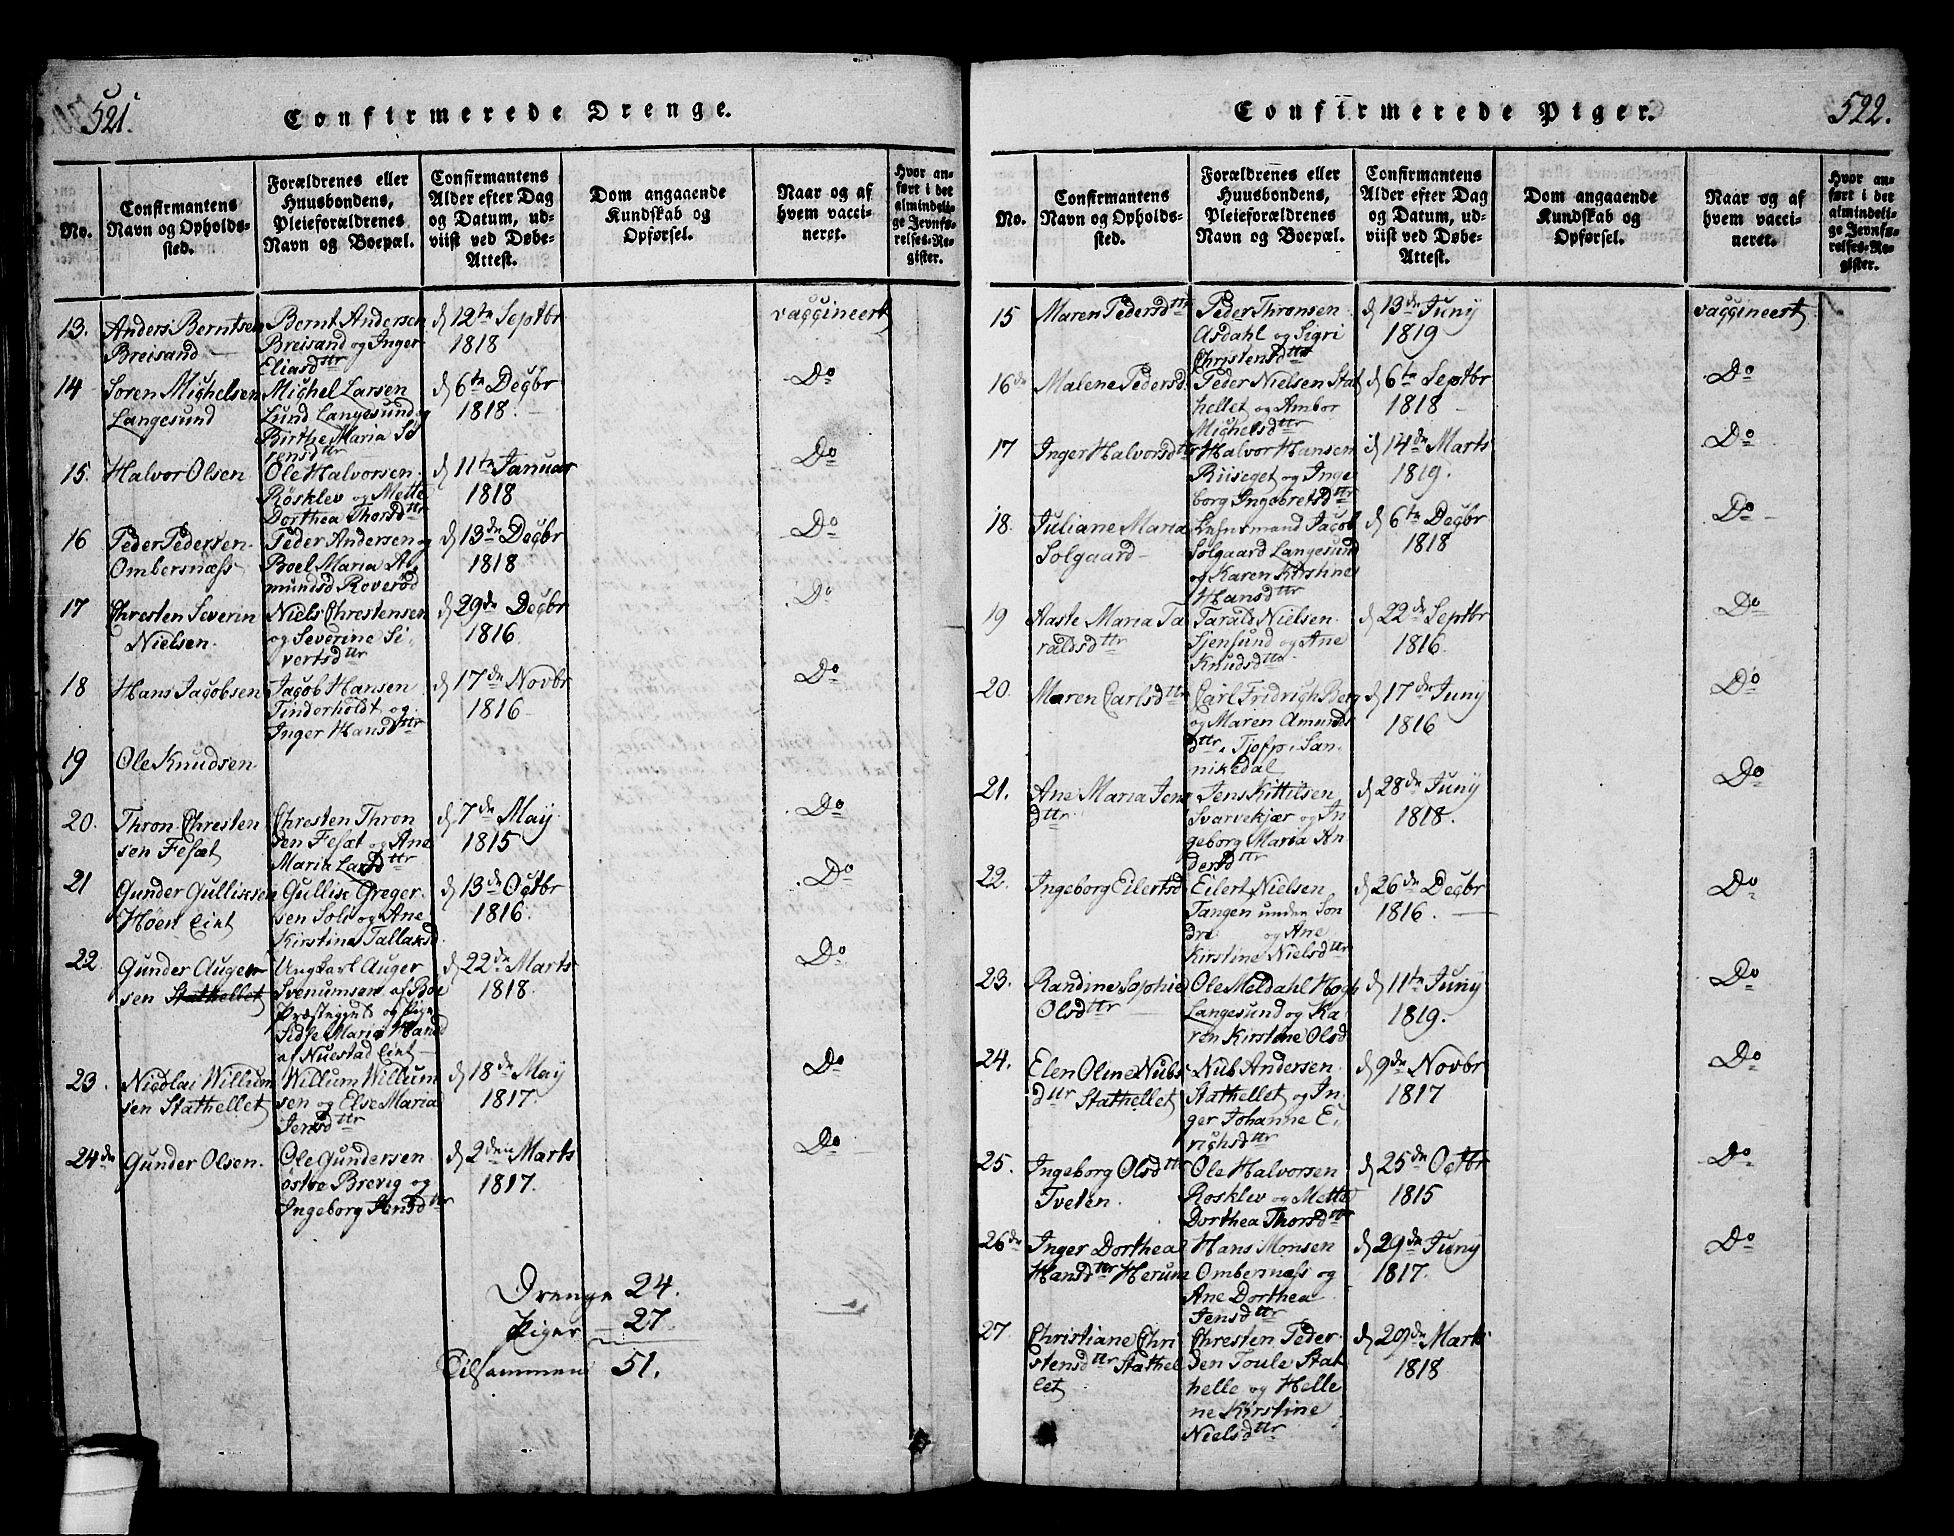 521.
Confirmerede Drenge.
No.
Confirmantens
Navn og Opholds-
sted.
Forældrenes eller
Huusbondens,
Pleieforældrenes
Navn og Boepæl.
Confirmantens
Alder efter Dag
og Datum, ud-
viist ved Døbe-
Attest.
Dom angaaende
Kundskab og
Opførsel.
Naar og af
hvem vacci-
neret.
Hvor an-
ført i det
almindeli-
ge Jevnfø-
relses-Re-
gister.
13.
Anders Berntsen
Breisand
Bernt Andersen
Breisand og Inger
Eliasdttr
d 12te Septbr
1818
vaccineert
14
Søren Michelsen
Langesund
Michel Larsen
Lund Langesund og
Birthe Maria Sø
rensdttr
d 6te Decbr
1818.
Do
15.
Halvor Olsen
Ole Halvorsen
Røsklev og Mette
Dorthea Thorsdttr
d 11te Januar
1818
Do
16
Peder Pedersen
Ombersnæss
Peder Andersen og
Boel Maria A
mundsd Roverød
d 13de Decbr
1818
Do
17
Chresten Severin
Nielsen.
Niels Chrestensen
og Severine Si-
vertsdttr
d 29de Decbr
1816.
Do
18
Hans Jacobsen
Jacob Hansen
Tinderholdt og
Inger Hansdttr
d 17de Novbr
1816
Do
19
Ole Knudsen
20.
Thron Chresten
sen Fesæt
Chresten Thron
sen Fesæt og Ane
Maria Larsdttr
d 7de May
1815
Do
21
Gunder Gulliksen
Høen Eint
Gullik Greger
sen Soli og Ane
Kirstine Tallaksd
d 13de Octbr
1816.
Do
22
Gunder Auger
sen Stathellet
Ungkarl Auger
Svenumsen af Bøe
Præstegield og Pige
Sidse Maria Hansd
af Nuestad Eint
d 22de Marts
1818.
Do
23.
Nicolai Willum
sen Stathellet
Willum Willum
sen og Else Maria
Jensdttr
d 18de May
1817.
Do
24de
Gunder Olsen.
Ole Gundersen
østre Brevig og
Ingeborg Jensdttr
d 2den Marts
1817.
Do
Drenge 24.
Piger 27
Tilsammen 51.
Confirmerede Piger.
522.
No.
Confirmantens
Navn og Opholds-
sted.
Forældrenes eller
Huusbondens,
Pleieforældrenes
Navn og Boepæl.
Confirmantens
Alder efter Dag
og Datum, ud-
viist ved Døbe-
Attest.
Dom angaaende
Kundskab og
Opførsel.
Naar og af
hvem vacci-
neret.
Hvor an-
ført i det
almindeli-
ge Jevnfø-
relses-Re-
gister.
15
Maren Pedersdttr
Peder Thronsen
Asdahl og Sigri
Christensdttr
d 13de Juny
1819
vaccineert
16de
Malene Pedersd.
Peder Nielsen Stat
hellet og Ambor
Michelsdttr
d 6te Septbr
1818
Do
17
Inger Halvorsdttr
Halvor Hansen
Riiseget og Inge
borg Ingebretsdttr
d 14de Marts
1819.
Do
18.
Juliane Maria
Solgaard
Jacob
Solgaard Langesund
og Karen Kirstine
Hansdttr
d 6te Decbr
1818
Do
19
Aaste Maria Ta
raldsdttr
Tarald Nielsen
og Ane
Knudsdttr
d 22de Septbr
1816.
Do
20.
Maren Carlsdttr
Carl Fridrich Berg
og Maren Amunds
dttr. San-
nikedal
d 17de Juny
1816
Do
21.
Ane Maria Jens
dttr
Jens Kittilsen
Svarvekjær og In
geborg Maria An
dersdttr
d 28de Juny
1818.
Do
22.
Ingeborg Eilertsd
Eilert Nielsen
Tangen under Son
dre og Ane
Kirstine Nielsdttr
d 26de Decbr
1816.
Do
23.
Randine Sophie
Olsdttr
Ole Meldahl Hogh
Langesund og Ka
ren Kirstine Olsd
d 11te Juny
1819.
Do
24.
Elen Oline Nubs
dttr Stathellet
Nub Andersen
Stathellet og In
ger Johanne E
richsdttr
d 9de Novbr
1817
Do
25.
Ingeborg Olsdttr
Tveten.
Ole Halvorsen
Rosklev og Mette
Dorthea Thorsdttr
d 25de Octbr
1815
Do
26de
Inger Dorthea
Hansdttr Herum
Hans Monsen
Ombersnæss og
Ane Dorthea
Jensdttr
d 29de Juny
1817.
Do
27.
Christiane Chri
stensdttr Stathel
let
Chresten Peder
sen Toule Stat
helle og Helle
ne Kirstine
Nielsdttr
d 29de Marts
1818